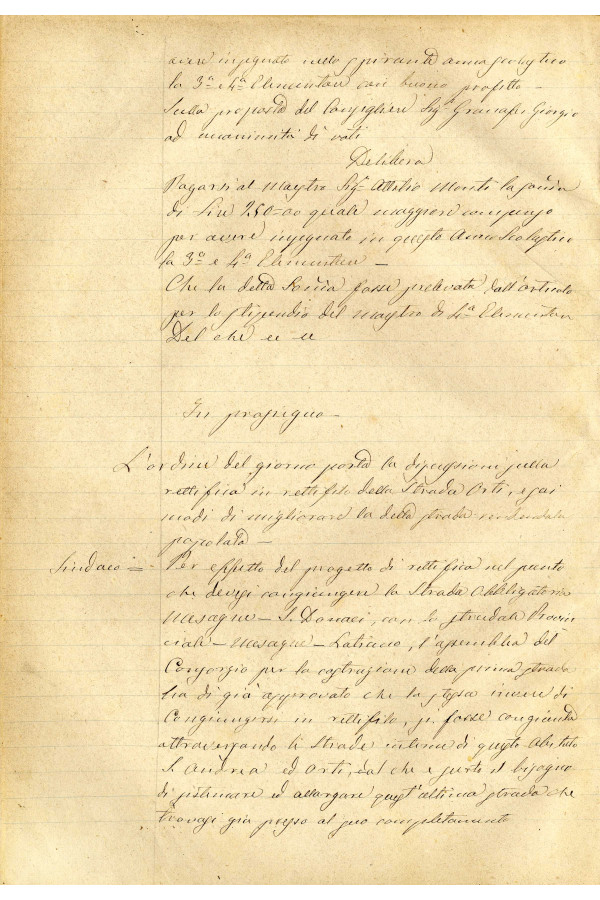 avere insegnato nello spirante anno scolastico
la 3ª e 4ª Elementare con buono profitto –
Sulla proposta del Consigliere Sigʳ Giorgio
ad unanimità di voti
Delibera
Pagarsi al Maestro Sigʳ Attilio Monti la somma
di Lire 250=00 quale maggiore compenso
per avere insegnato in questo Anno Scolastico
la 3ª e 4ª Elementare –
Che la detta somma fosse prelevata dall'articolo
per lo stipendio del Maestro di 4ª Elementare
Del che
In proseguo –
L'ordine del giorno porta la discussione sulla
rettifica in rettifilo della Strada Orti, e sui
modi di migliorare la detta strada
popolata –
Sindaco = Per effetto del progetto di rettifica nel punto
che devesi congiungere la Strada Obbligatoria
Mesagne – S. Donaci, con lo stradale Provin
ciale – Mesagne – Latiano, l'assemblea del
Consorzio per la costruzione della prima strada
ha di già approvato che la stessa invece di
Congiungersi in rettifilo, si fosse congiunta
attraversando le Strade interne di questo Abitato
S. Andrea ed Orti, dal che è surto il bisogno
di sistemare ed allargare quest'ultima strada che
trovasi già presso al suo completamento